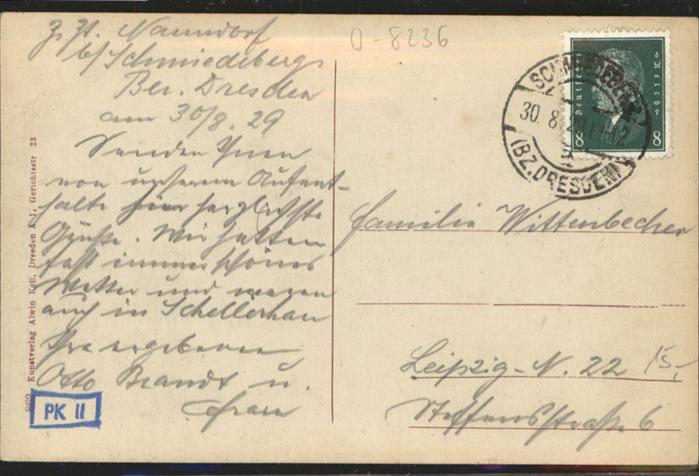 O-8236
z. Zt. Naundorf
b/Schmiedeberg
Bez. Dresden
am 30/8. 29
Senden Ihnen
von unserem Aufent-
halte hier herzlichste
Grüße. Wir hatten
fast immer schönes
Wetter und waren
auch in Schellerhau
Ihre ergebenen
Otto Brandt u.
Frau
PK II
Kunstverlag Alwin Keil, Dresden A.1, Gerichtsstr 23
Deutsches Reich
8 8
SCHMIEDEBERG
30. 8. 29
(BZ. DRESDEN)
Familie Wittenbecher
Leipzig-N. 22
15,-
Steffensstraße 6